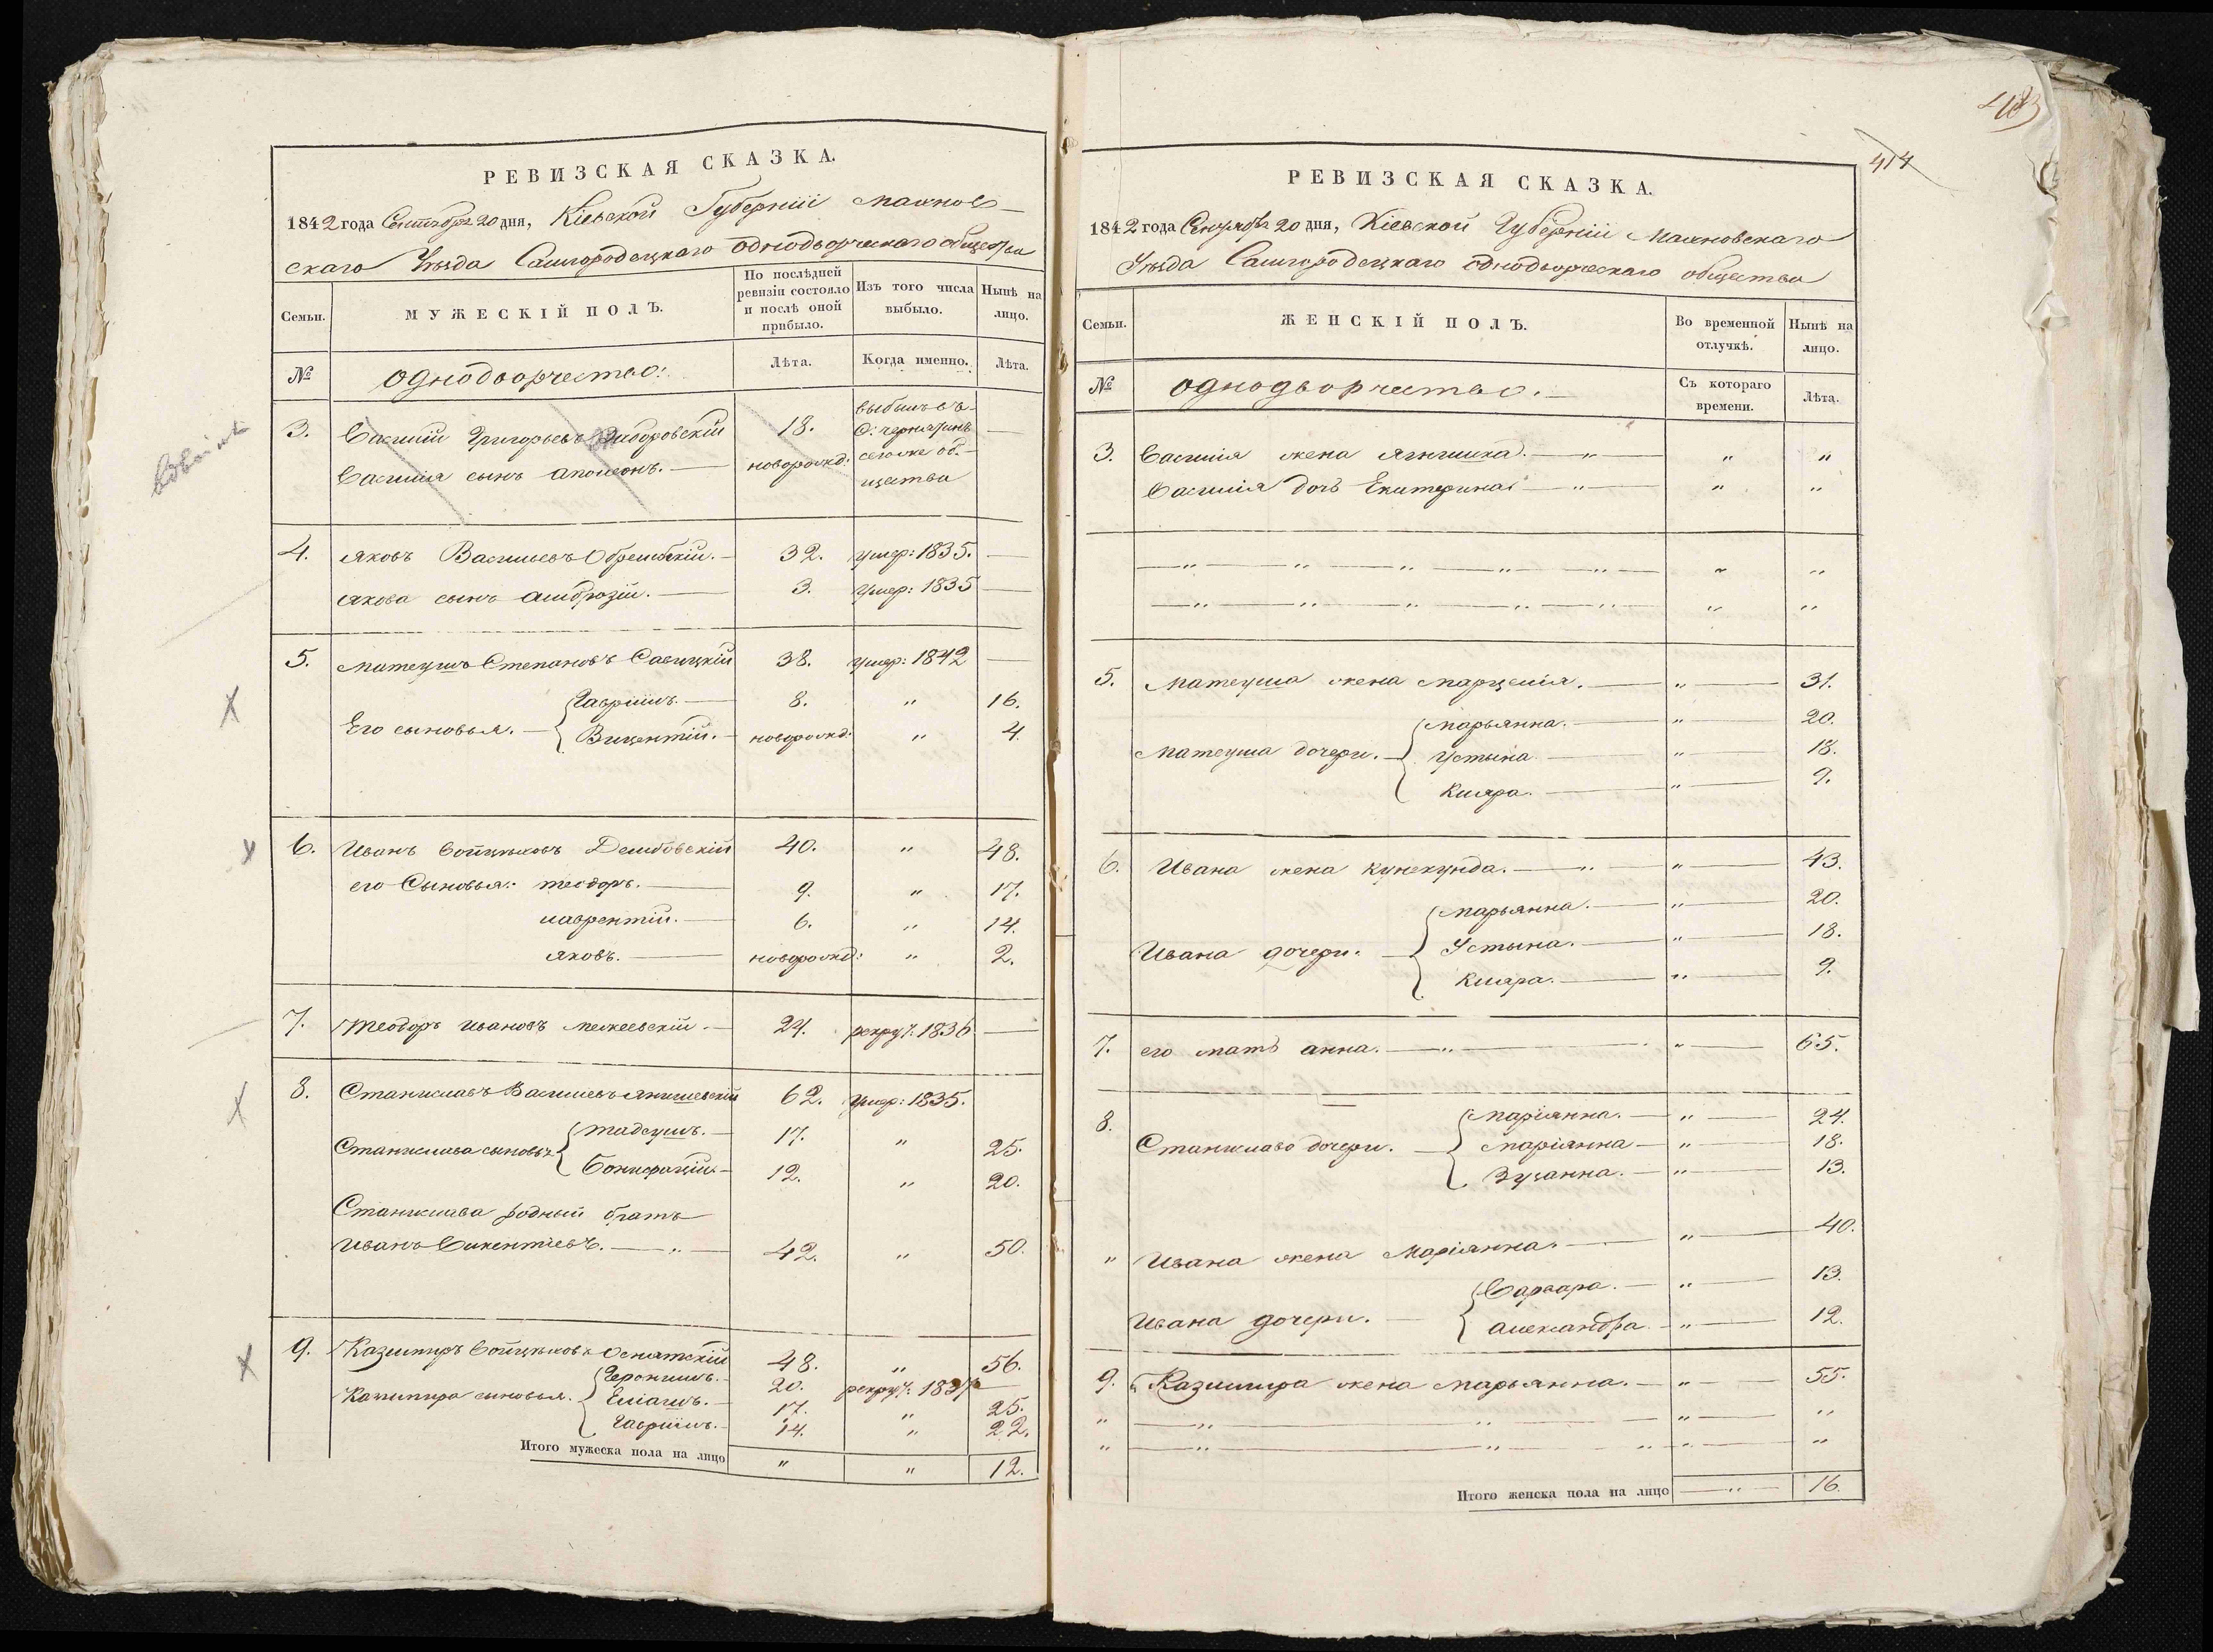 РЕВИЗСКАЯ СКАЗКА.
1842 года Сентября 20 дня, Кіевской Губерніи Махнов-
скаго Уѣзда Самгородецкаго однодворческаго общества
Семьи.
МУЖЕСКІЙ ПОЛЪ.
По послѣдней ревизіи состояло и послѣ оной прибыло.
Изъ того числа выбыло.
Нынѣ на лицо.
№
однодворчество:
Лѣта.
Когда именно.
Лѣта.
3. Василій Григорьевъ 18. выбылъ въ
Василія сынъ Аполонъ. новорожд: с. Чернятинъ
сего же об-
щества
4. Яковъ Васильевъ 32. умер: 1835.
Якова сынъ Амброзій. 3. умер: 1835
5. Матеушъ Степановъ Савицкій 38. умер: 1842
Его сыновья. Гавріилъ. 8. " 16.
Вицентій. новорожд: " 4.
6. Иванъ Войцѣховъ Дембовскій 40. " 48.
его Сыновья: теодоръ. 9. " 17.
лаврентій. 6. " 14.
яковъ. новорожд: " 2.
7. Теодоръ Ивановъ 24. рекрут: 1836
8. Станиславъ Васильевъ Янишевскій 62. умер: 1835.
Станислава сыновья Тадеушъ. 17. " 25.
Бонифацій. 12. " 20.
Станислава родный братъ
Иванъ Викентіевъ. " 42. " 50.
9. Казимиръ Войцѣховъ Оснятскій 48. " 56.
Геронимъ. 20. рекрут: 1837
Казимира сыновья. Еліашъ. 17. " 25.
Гавріилъ. 14. " 22.
Итого мужеска пола на лицо " " 12.
414
РЕВИЗСКАЯ СКАЗКА.
1842 года Сентября 20 дня, Кіевской Губерніи Махновскаго
Уѣзда Самгородецкаго однодворческаго общества
Семьи.
ЖЕНСКІЙ ПОЛЪ.
Во временной отлучкѣ.
Нынѣ на лицо.
№
однодворчество.
Съ котораго времени.
Лѣта.
3. Василія жена Ягнишка. " " "
Василія дочь Екатерина " " "
" " " " " " "
" " " " " " "
5. Матеуша жена Марцелія. " 31.
Марьянна. " 20.
Матеуша дочери. Устына " 18.
Клара. " 9.
6. Ивана жена Кунекунда. " " 43.
Марьянна. " 20.
Ивана дочери. Устына. " 18.
Клара. " 9.
7. его мать анна. " " 65.
8. Маріянна. " 24.
Станислава дочери. Маріянна " 18.
Зузанна. " 13.
" Ивана жена Маріянна. " 40.
Варвара. " 13.
Ивана дочери. Александра. " 12.
9. Казимира жена Марьянна. " 55.
" " " " "
" " " " " "
Итого женска пола на лицо " 16.